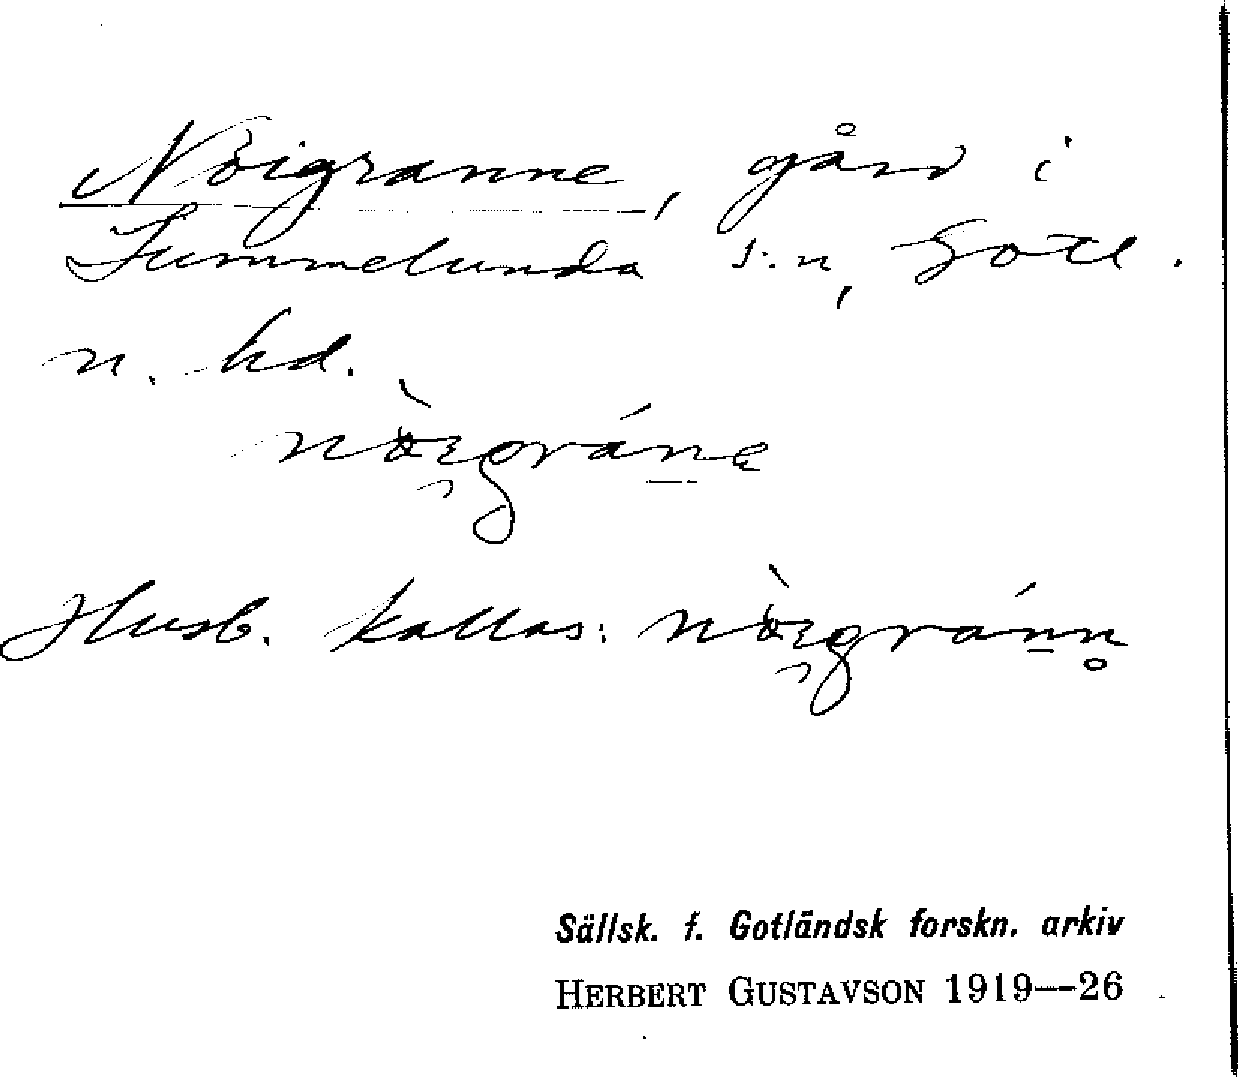 Nöigranne, gård i
Lummelunda s:n, Gotl.
n. hd.
Husb. kallas:
Sällsk. f. Gotländsk forskn. arkiv
HERBERT GUSTAVSON 1919—26